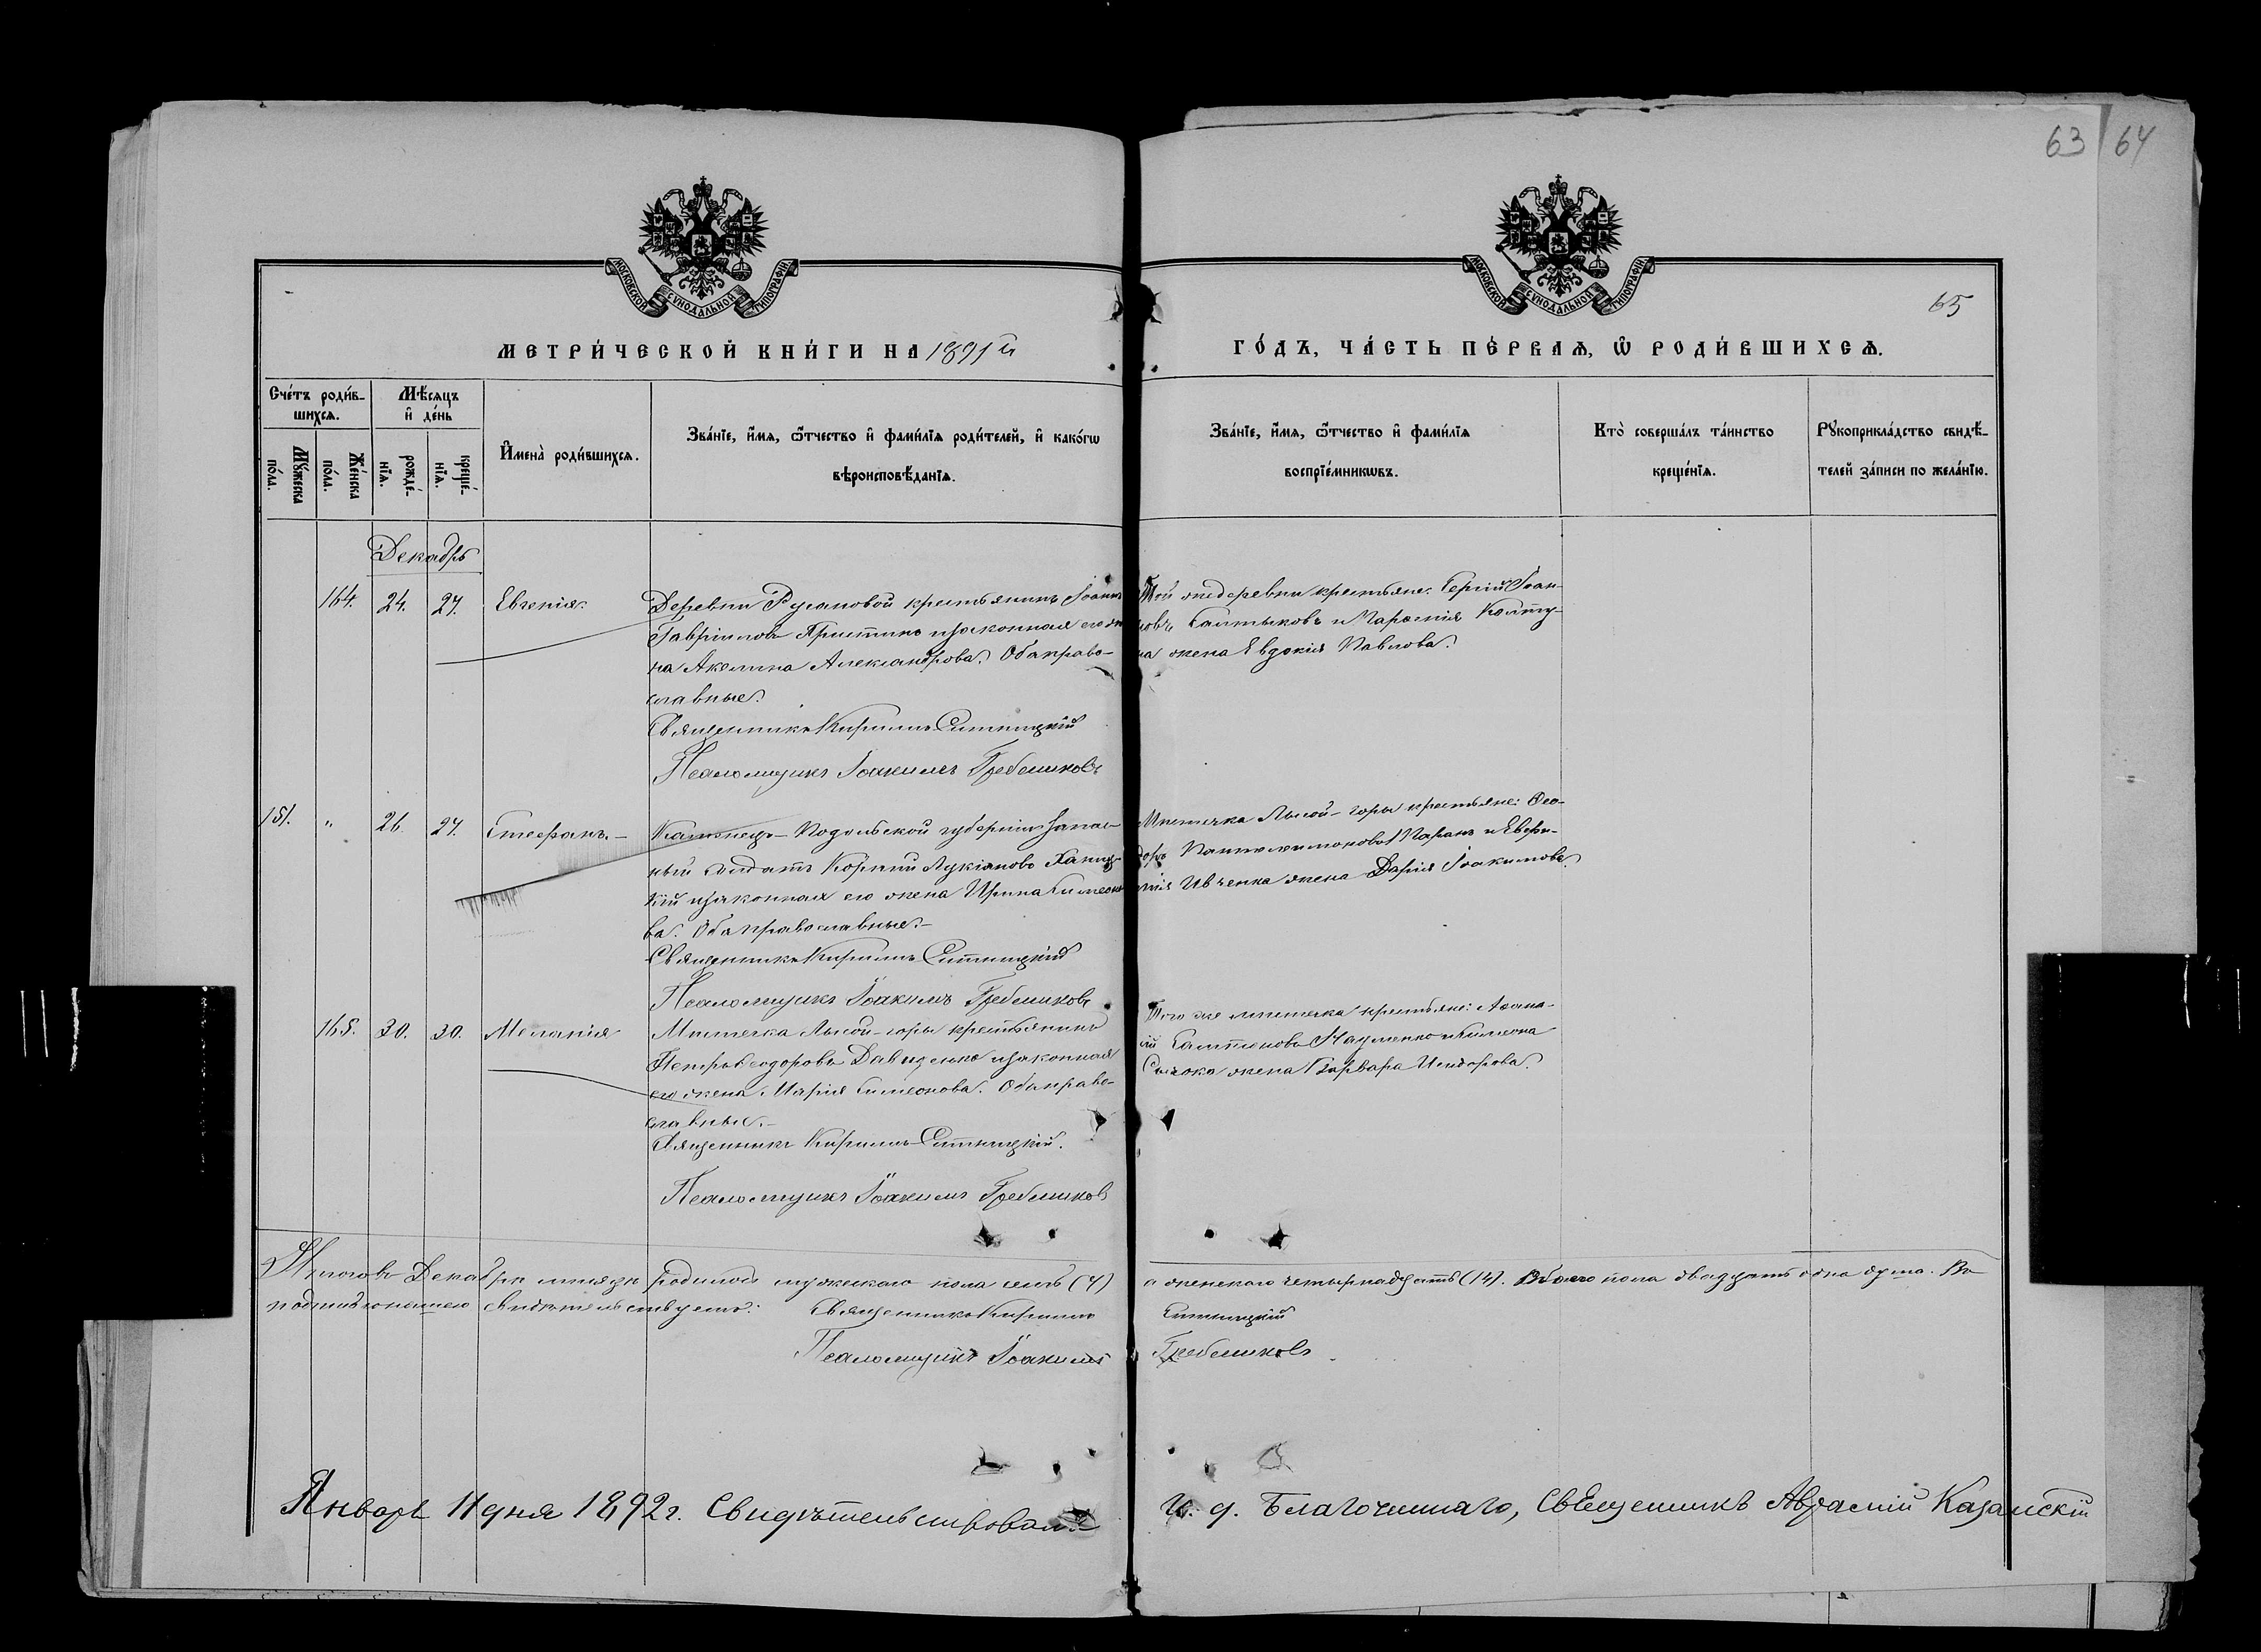 63 64
МОСКОВСКОЙ СѴНОДАЛЬНОЙ ТИПОГРАФІИ
МОСКОВСКОЙ СѴНОДАЛЬНОЙ ТИПОГРАФІИ
65
МЕТРИ́ЧЕСКОЙ КНИ́ГИ НА 1891й
ГО́ДЪ, ЧА́СТЬ ПЕ́РВАѦ, Ѿ РОДИ́ВШИХСѦ.
Сче́тъ роди́в-
шихсѧ.
Мѣ́сѧцъ
и҆ де́нь
Мꙋ́жеска
по́ла.
Же́нска
по́ла.
рожде́-
нїѧ.
креще́-
нїѧ.
И҆мена̀ роди́вшихсѧ.
Зва́нїе, и҆́мѧ, ѻ҆́тчество и҆ фами́лїѧ роди́телей, и҆ како́гѡ
вѣроисповѣ́данїѧ.
Зва́нїе, и҆́мѧ, ѻ҆́тчество и҆ фами́лїѧ
воспрїе́мникѡвъ.
Кто̀ соверша́лъ та́инство
креще́нїѧ.
Рꙋкоприкла́дство свидѣ́-
телей за́писи по жела́нїю.
Декабрь
164. 24. 27. Евгенія.
Деревни Русановой крестьянинъ Іоаннъ
Гавріиловъ и законная его же-
на Акилина Александрова. Оба право-
славные.
Священникъ Кириллъ Ситницкій
Псаломщикъ Іоакимъ Гребенниковъ
Той же деревни крестьяне: Сергій Іоан-
новъ Салтыковъ и
на жена Евдокія Павлова.
151. " 26. 27. Стефанъ.
Каменецъ-Подольской губерніи запас-
ный солдатъ Корнилій Лукіановъ
кій и законная его жена Ирина Симеоно-
ва. Оба православные.
Священникъ Кириллъ Ситницкій
Псаломщикъ Іоакимъ Гребенниковъ
Мѣстечка Лысой-горы крестьяне: Ѳео-
доръ Пантелеимоновъ и
Ивченка жена Дарія Іоакимова.
165. 30. 30. Меланія
Мѣстечка Лысой-горы крестьянинъ
Петръ Ѳеодоровъ Давиденко и законная
его жена Марія Симеонова. Оба право-
славные.
Священникъ Кириллъ Ситницкій.
Псаломщикъ Іоакимъ Гребенниковъ
Того же мѣстечка крестьяне: Аѳана-
сій Науменко и Симеона
жена Варвара Исидорова.
Итого въ Декабрѣ мѣсяцѣ родилось мужескаго пола семь (7) а женскаго четырнадцать (14). Обоего пола двадцать одна душа. Въ
свидѣтельствуемъ: Священникъ Кириллъ Ситницкій
Псаломщикъ Іоакимъ Гребенниковъ
Январь 11 дня 1892 г. Свидѣтельствовалъ и. д. Благочиннаго, Священникъ Авраамій Казанскій